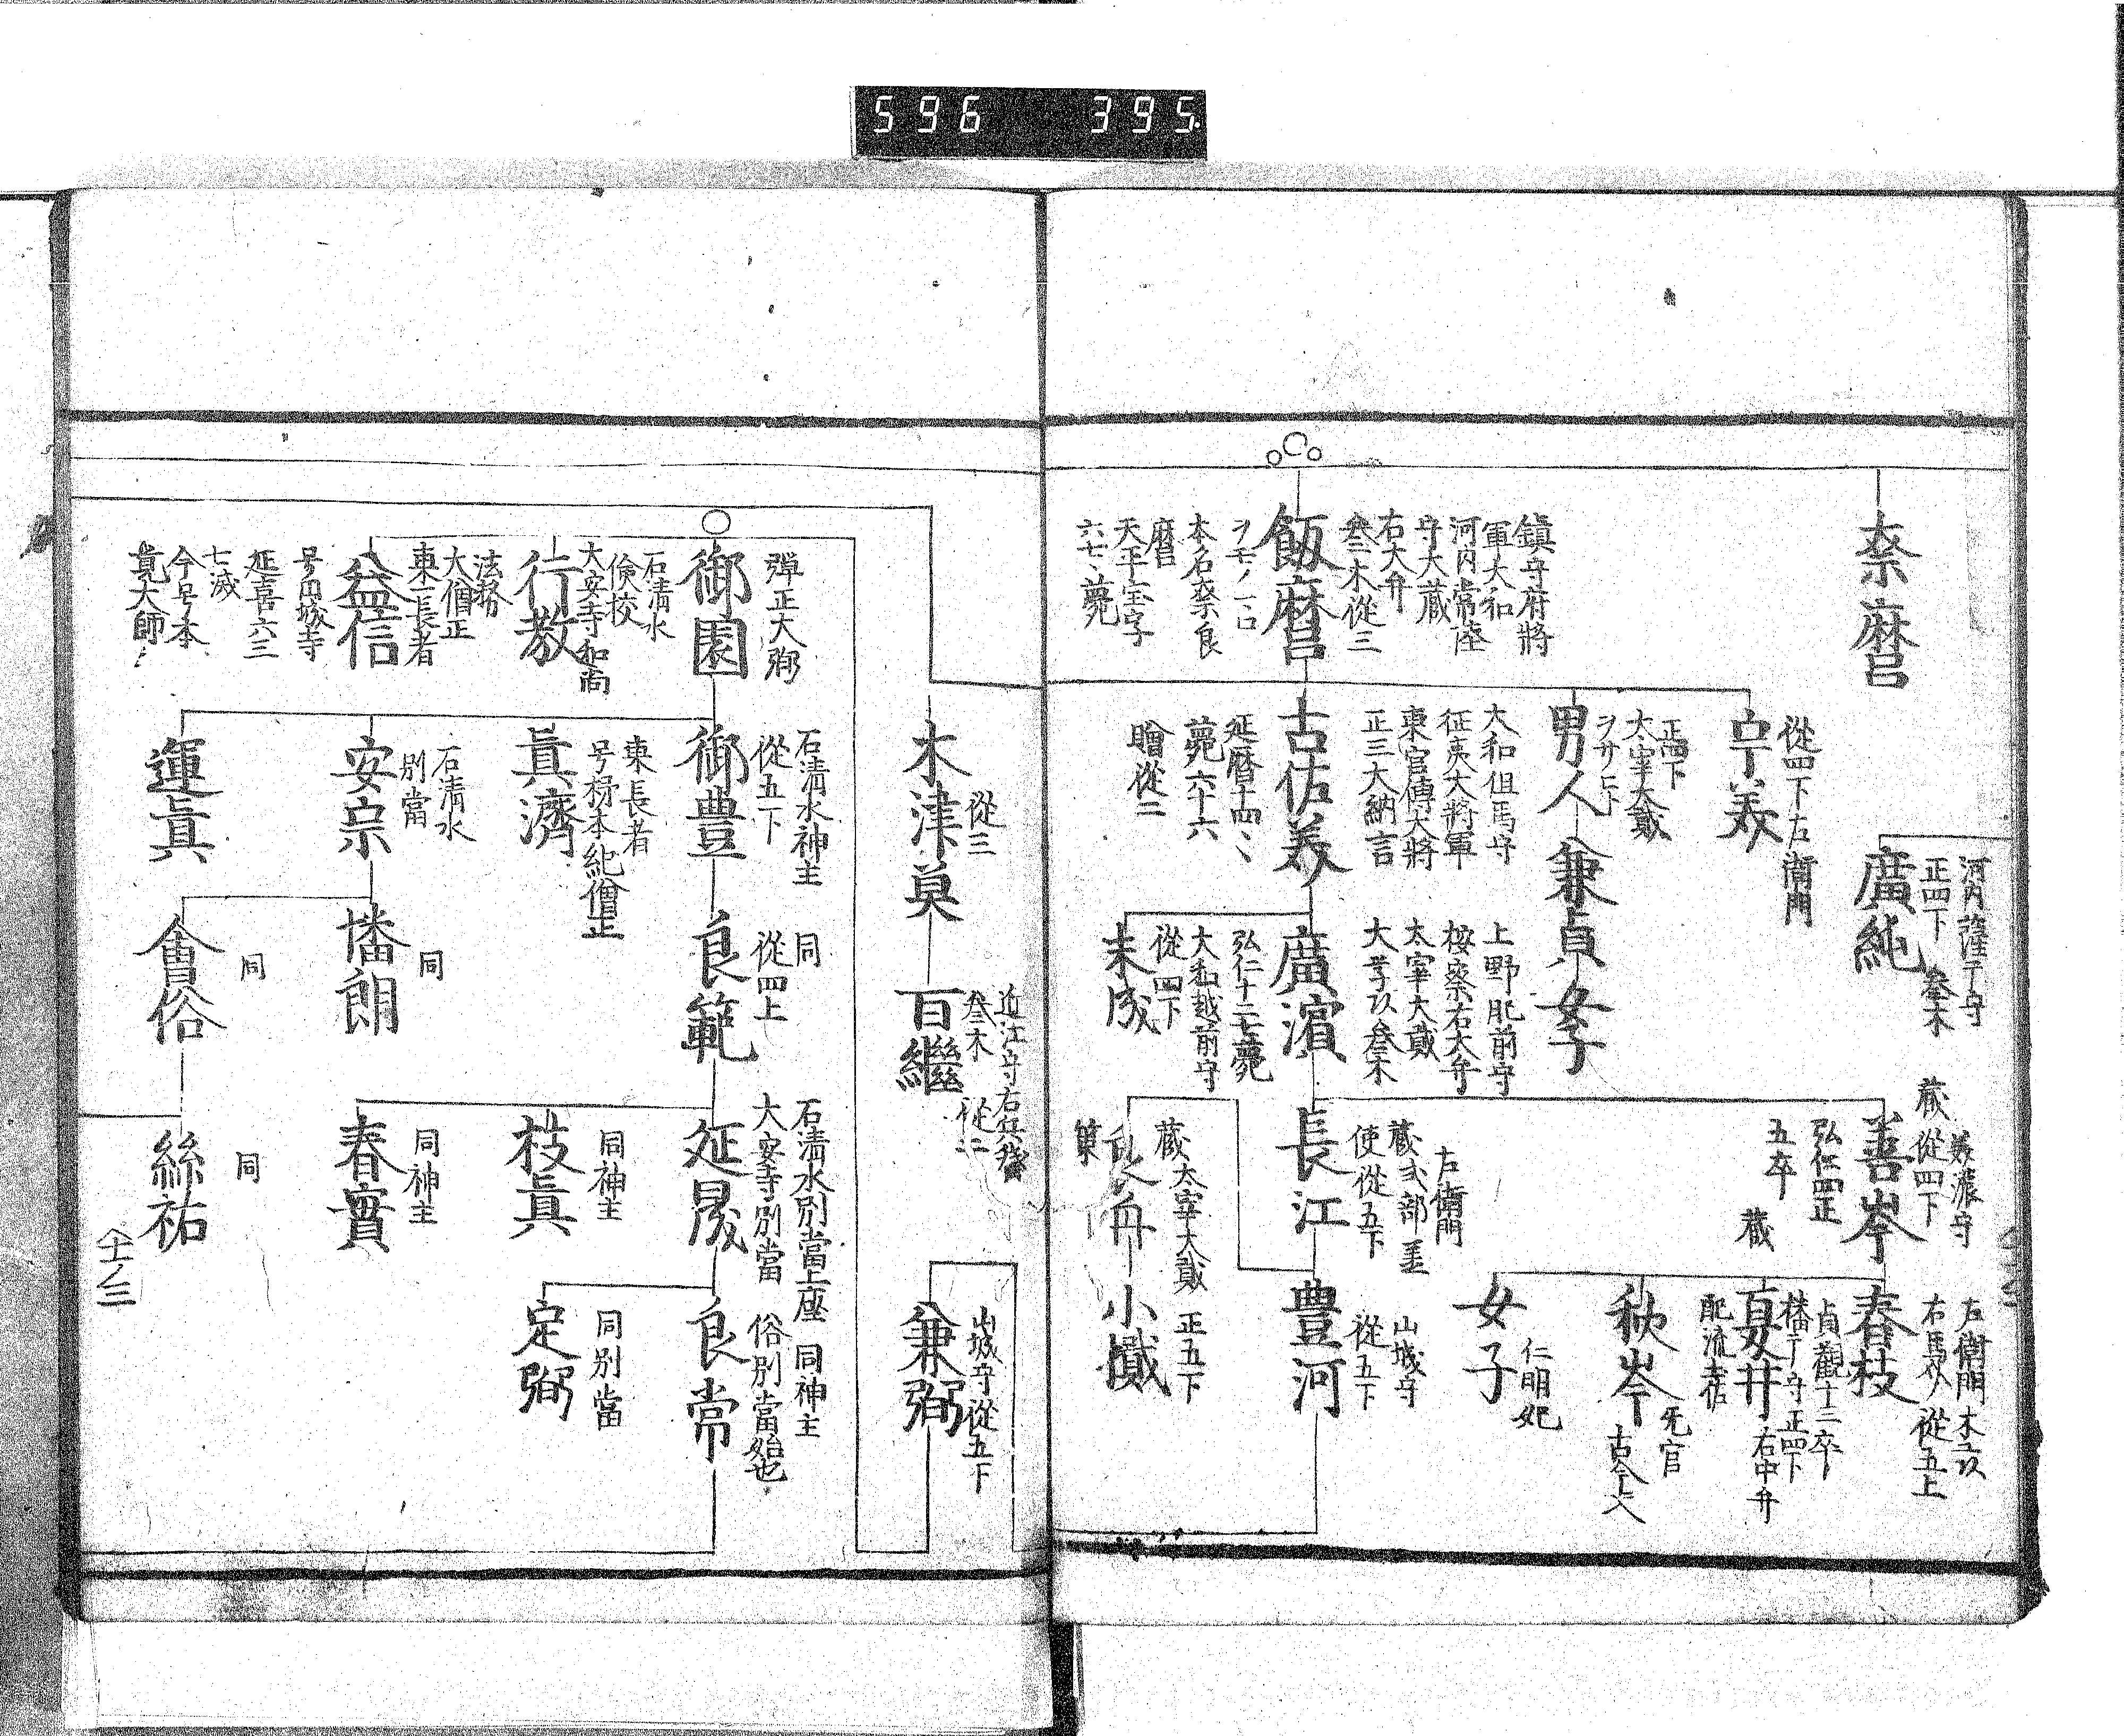 596 395
奈麿
鎮守府將
軍大和
河内常陸
守大蔵
右大弁
叅木從三
飯麿
本名奈良
麿
天平宝字
六七、薨
從四下左衛門
宇美
正四下
太宰大貳
男人
兼貞
女子
大和但馬守
征夷大将軍
東宮傅大將
正三大納言
古佐美
延暦十四、、
薨六十六
贈從二
河内薩广守
正四下 叅木
廣純
上野肥前守
按察右大弁
太宰大貳
大学头叅木
廣濱
弘仁十二七薨
大和越前守
從四下
末成
美濃守
蔵 從四下
善岑
弘仁四正
五卒
蔵
右衛門
蔵式部丞
使從五下
長江
蔵太宰大貳
長舟
左衛門木工头
右馬头 從五上
春枝
貞觀十三卒
播广守正四下
夏井
右中弁
配流土佐
秋岑
无官
古今上人
女子
仁明妃
山城守
從五下
豊河
正五下
小懺
從三
木津莫
近江守右兵督
叅木 從二
百繼
山城守從五下
兼弼
彈正大弼
御園
石清水
儉校
大安寺和尚
行教
法務
大僧正
東一長者
益信
号円城寺
延喜六三
七滅
今号本
覚大師
石清水神主
從五下
御豊
東長者
号柿本紀僧正
眞濟
石清水
別當
安宗
運眞
同
從四上
良範
同
播朗
同
會俗
石清水別當上座
大安寺別當
延晟
同神主
枝眞
同神主
春實
同
絲祐
同神主
俗別當始也
良常
同別當
定弼
十ノ三